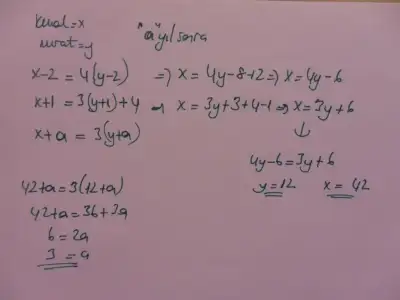 Kemal = x
murat = y
"a" yıl sonra
x-2 = 4(y-2) => x = 4y-8+2 => x = 4y-6
x+1 = 3(y+1)+4 → x = 3y+3+4-1 => x = 3y+6
x+a = 3(y+a)
↓
4y-6 = 3y+6
y = 12 x = 42
42+a = 3(12+a)
42+a = 36+3a
6 = 2a
3 = a